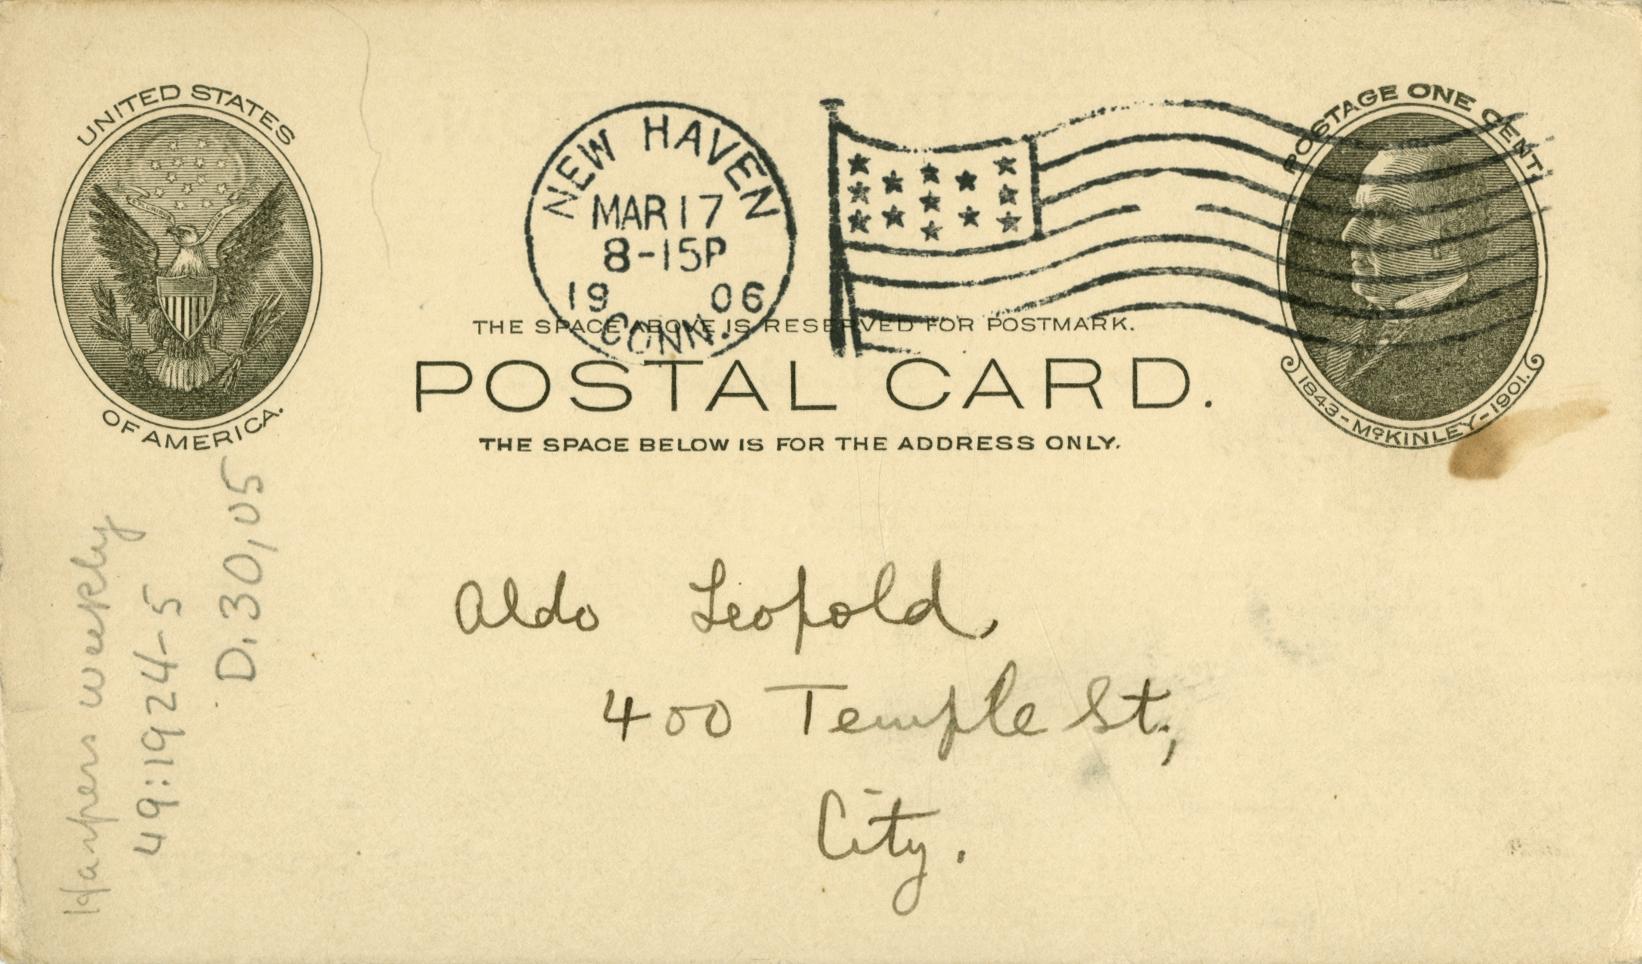 UNITED STATES
OF AMERICA.
NEW HAVEN
MAR 17
8-15P
19 06
CONN.
POSTAGE ONE CENT.
1843-McKINLEY-1901.
THE SPACE ABOVE IS RESERVED FOR POSTMARK.
POSTAL CARD.
THE SPACE BELOW IS FOR THE ADDRESS ONLY.
Aldo Leopold,
400 Temple St.,
City.
Harpers weekly
49:1924-5
D.30,05